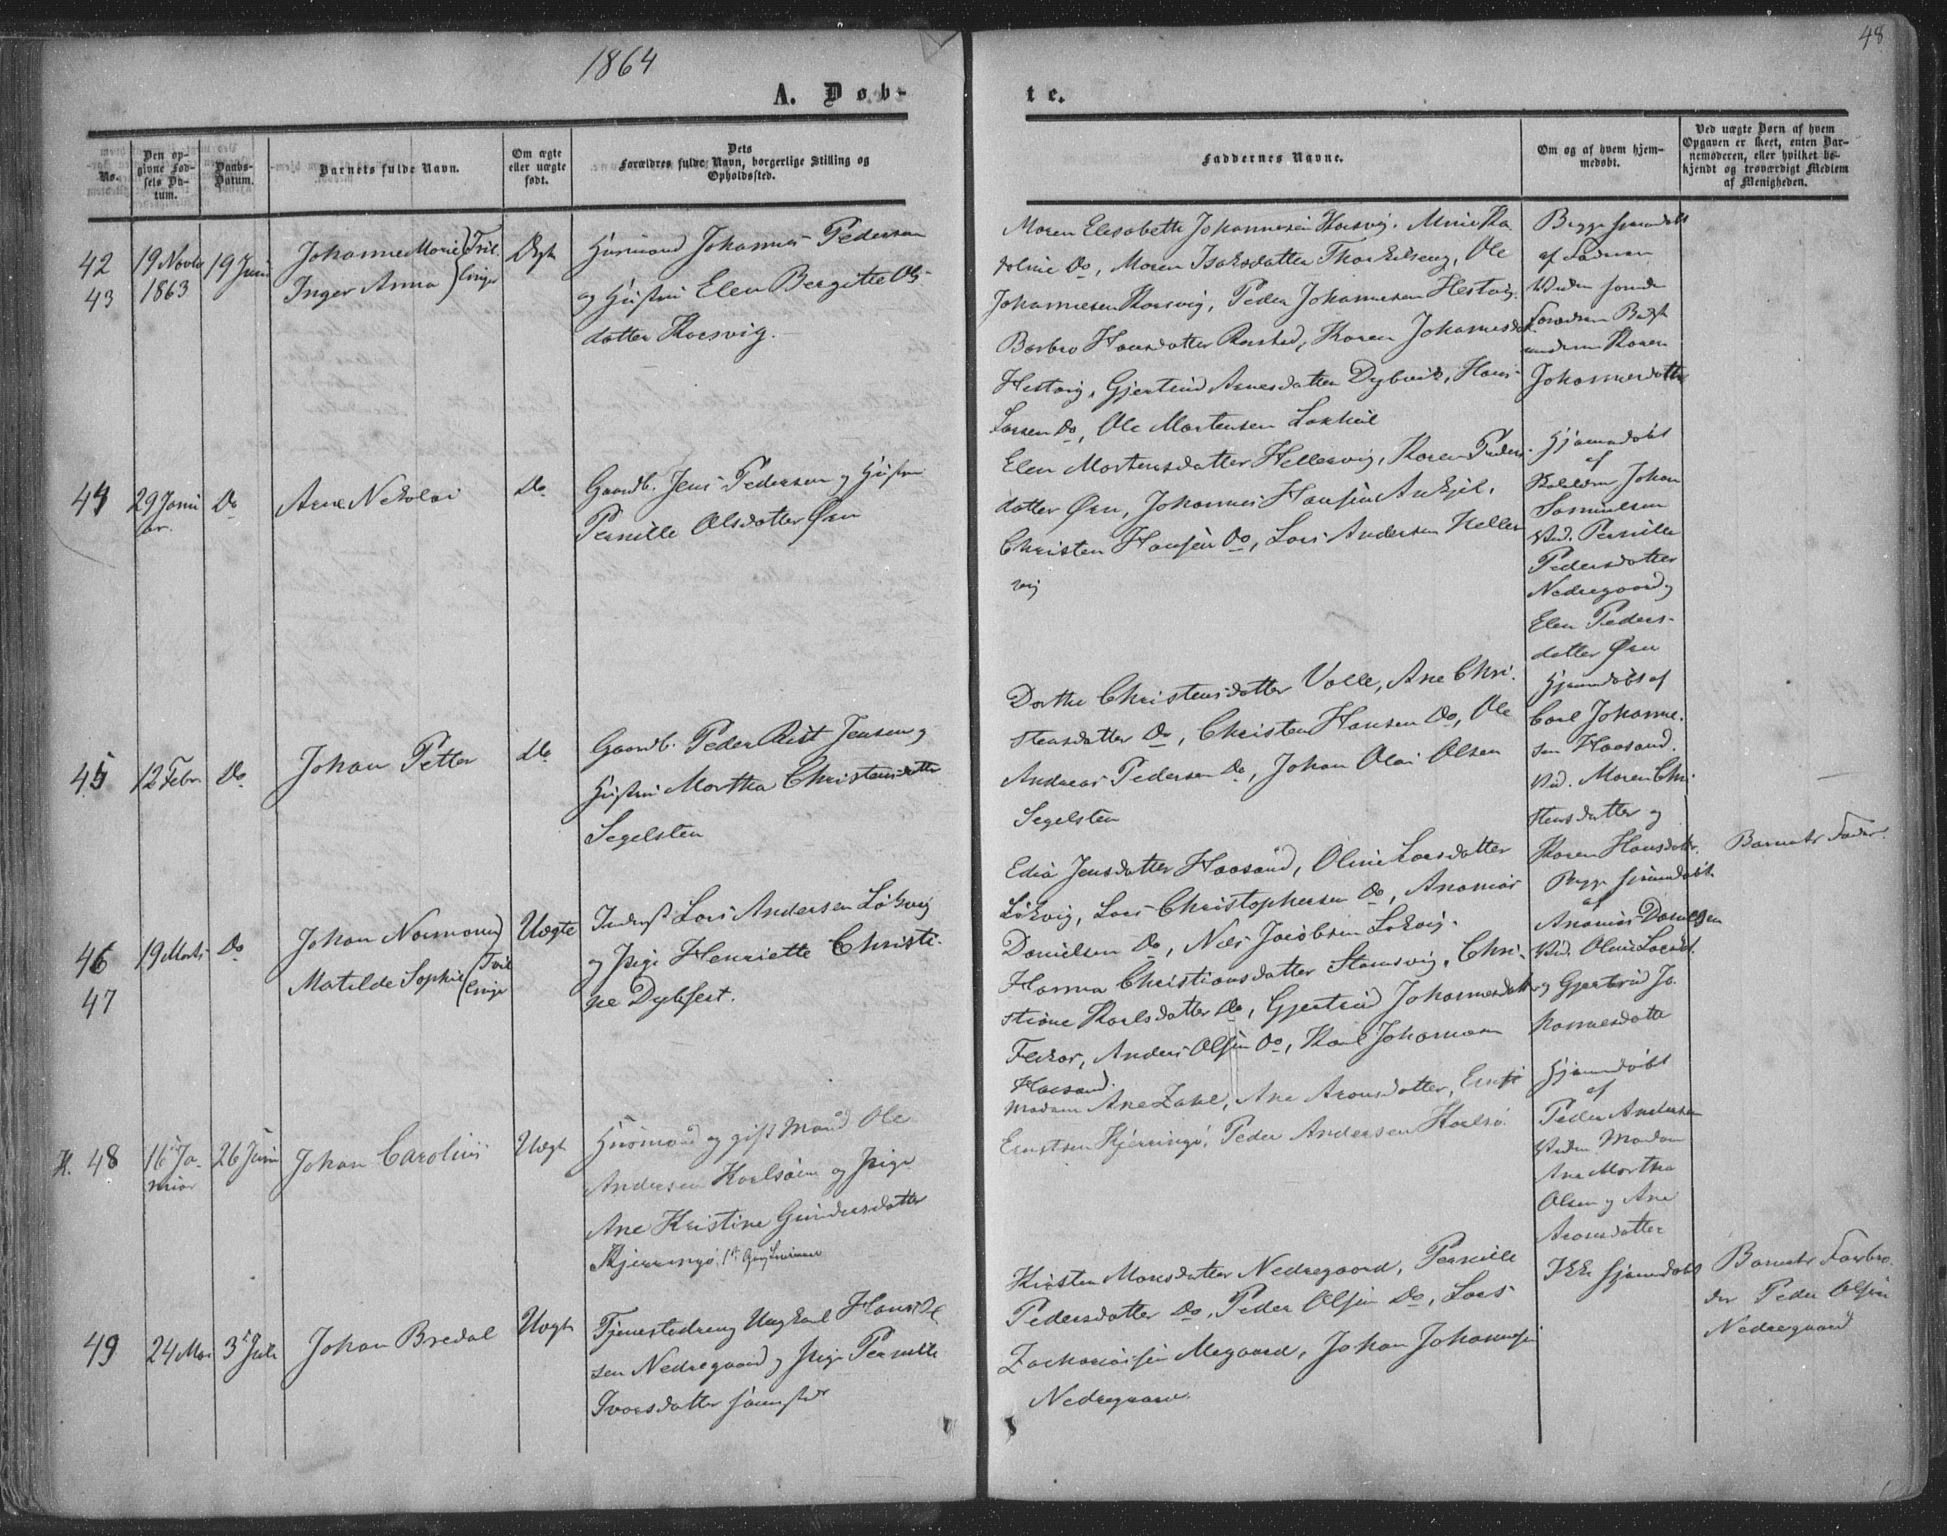 1864
48
A. Døb-
te.
No.
Den op-
givne Fød-
sels Da-
tum.
Daabs-
Datum.
Barnets fulde Navn.
Om ægte
eller uægte
født.
Dets
Forældres fulde Navn, borgerlige Stilling og
Opholdssted.
Faddernes Navne.
Om og af hvem hjem-
medøbt.
Ved uægte Børn af hvem
Opgaven er skeet, enten Bar-
nemoderen, eller hvilket be-
kjendt og troværdigt Medlem
af Menigheden.
42
43
19 Novbr
1863
19 Juni
Johanne Marie
Inger Anna
Tvil-
linger
Ægte
Huusmand Johannes Pedersen
og Hustru Elen Bergitte Ols-
datter Korsvig.
Maren Elisabeth Johannesen Korsvig,
Do, Maren Isaksdatter Ole
Johannesen Korsvig, Peder Johannesen Hestvig
Barbro Hansdatter Karen Johannesdat
Hestvig, Gjertrud Arnesdatter Dybvik, Hans
Larsen Do, Ole Mortensen
Begge hjemdøbt
af Faderen
Viden foruden
Forældrene
Karen
Johannesdatter
44
29 Janu
ar.
Do
Arne Nekolai
Do
Gaardb. Jens Pedersen og Hustru
Pernille Olsdatter Øen
Elen Mortensdatter Hellesvig, Karen Peders-
datter Øen, Johannes Hansen
Christen Hansen Do, Lars Andersen Helles
vig
Hjemmedøbt
af
Johan
Samuelsen
Vid. Pernille
Pedersdatter
Nedregaard og
Elen Peders-
datter Øen
45
12 Febr
Do
Johan Petter
Do
Gaardb. Peder Rist Jensen og
Hustru Martha Christensdatter
Segelsten
Dorthe Christensdatter Valle, Ane Chri-
stensdatter Do, Christen Hansen Do, Ole
Andreas Pedersen Do, Johan Olai Olsen
Segelsten
Hjemdøbt af
Carl Johanne-
sen Haasand.
Vid. Maren Chri
stensdatter og
Karen Hansdatter.
46
47
19 Marts
Do
Johan Normann
Matilde Sophie
Tvil
linger
Uægte
Inderst Lars Andersen Løkvig
og Pige Henriette Christi-
ne Dybfest.
Edia Jensdatter Haasand, Oline Larsdatter
Løkvig, Lars Christophersen Do, Ananias
Danielsen Do, Nils Jacobsen Løkvig.
Hanna Christiansdatter Stamsvig, Chri-
stiane Karlsdatter Do, Gjertrud Johannesdatter
Anders Olsen Do, Karl Johansen
Haasand.
Begge hjemdøbt
af
Ananias Danielsen
Vid. Oline Larsdt.
og Gjertrud Jo
hannesdatter
Barnets Fader.
K. 48
16 Ja-
nuar
26 Juni
Johan Carolius
Uægte
Huusmand og gift Mand Ole
Andersen Karlsøen og Pige
Ane Kristine Gundersdatter
Kjerringø.
Madam Ane Zahl, Ane Aronsdatter, Ernst
Ernstsen Kjerringø, Peder Andersen Karlsø
Hjemmedøbt
af
Peder Andersen
Viden Madam
Ane Martha
Olsen og Ane
Aronsdatter
49
24 Mai
3 Juli
Johan Bredal
Uægte
Tjenestedreng Ungkarl Hans Ol-
sen Nedregaard og Pige Pernille
Ivarsdatter samsted
Kirsten Monsdatter Nedregaard, Pernille
Pedersdatter Do, Peder Olsen Do, Lars
Zachariassen Megaard, Johan Johannesen
Nedregaard
Ikke hjemdøbt
Barnets Farbro-
der Peder Olsen
Nedregaard